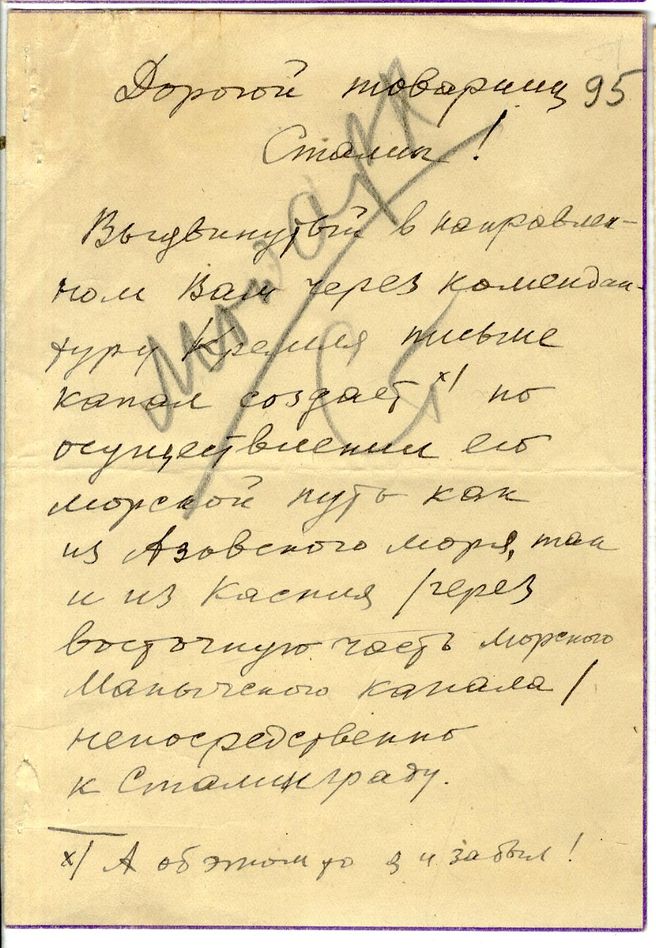 Дорогой товарищ 95
Сталин!
Выдвинутый в направлен-
ном Вам через комендан-
туру Кремля письме
канал создает x/ по
осуществлении его
морской путь как
из Азовского моря, так
и из Каспия /через
восточную часть морского
Манычского канала/
непосредственно
к Сталинграду.
x/ А об этом-то я и забыл!